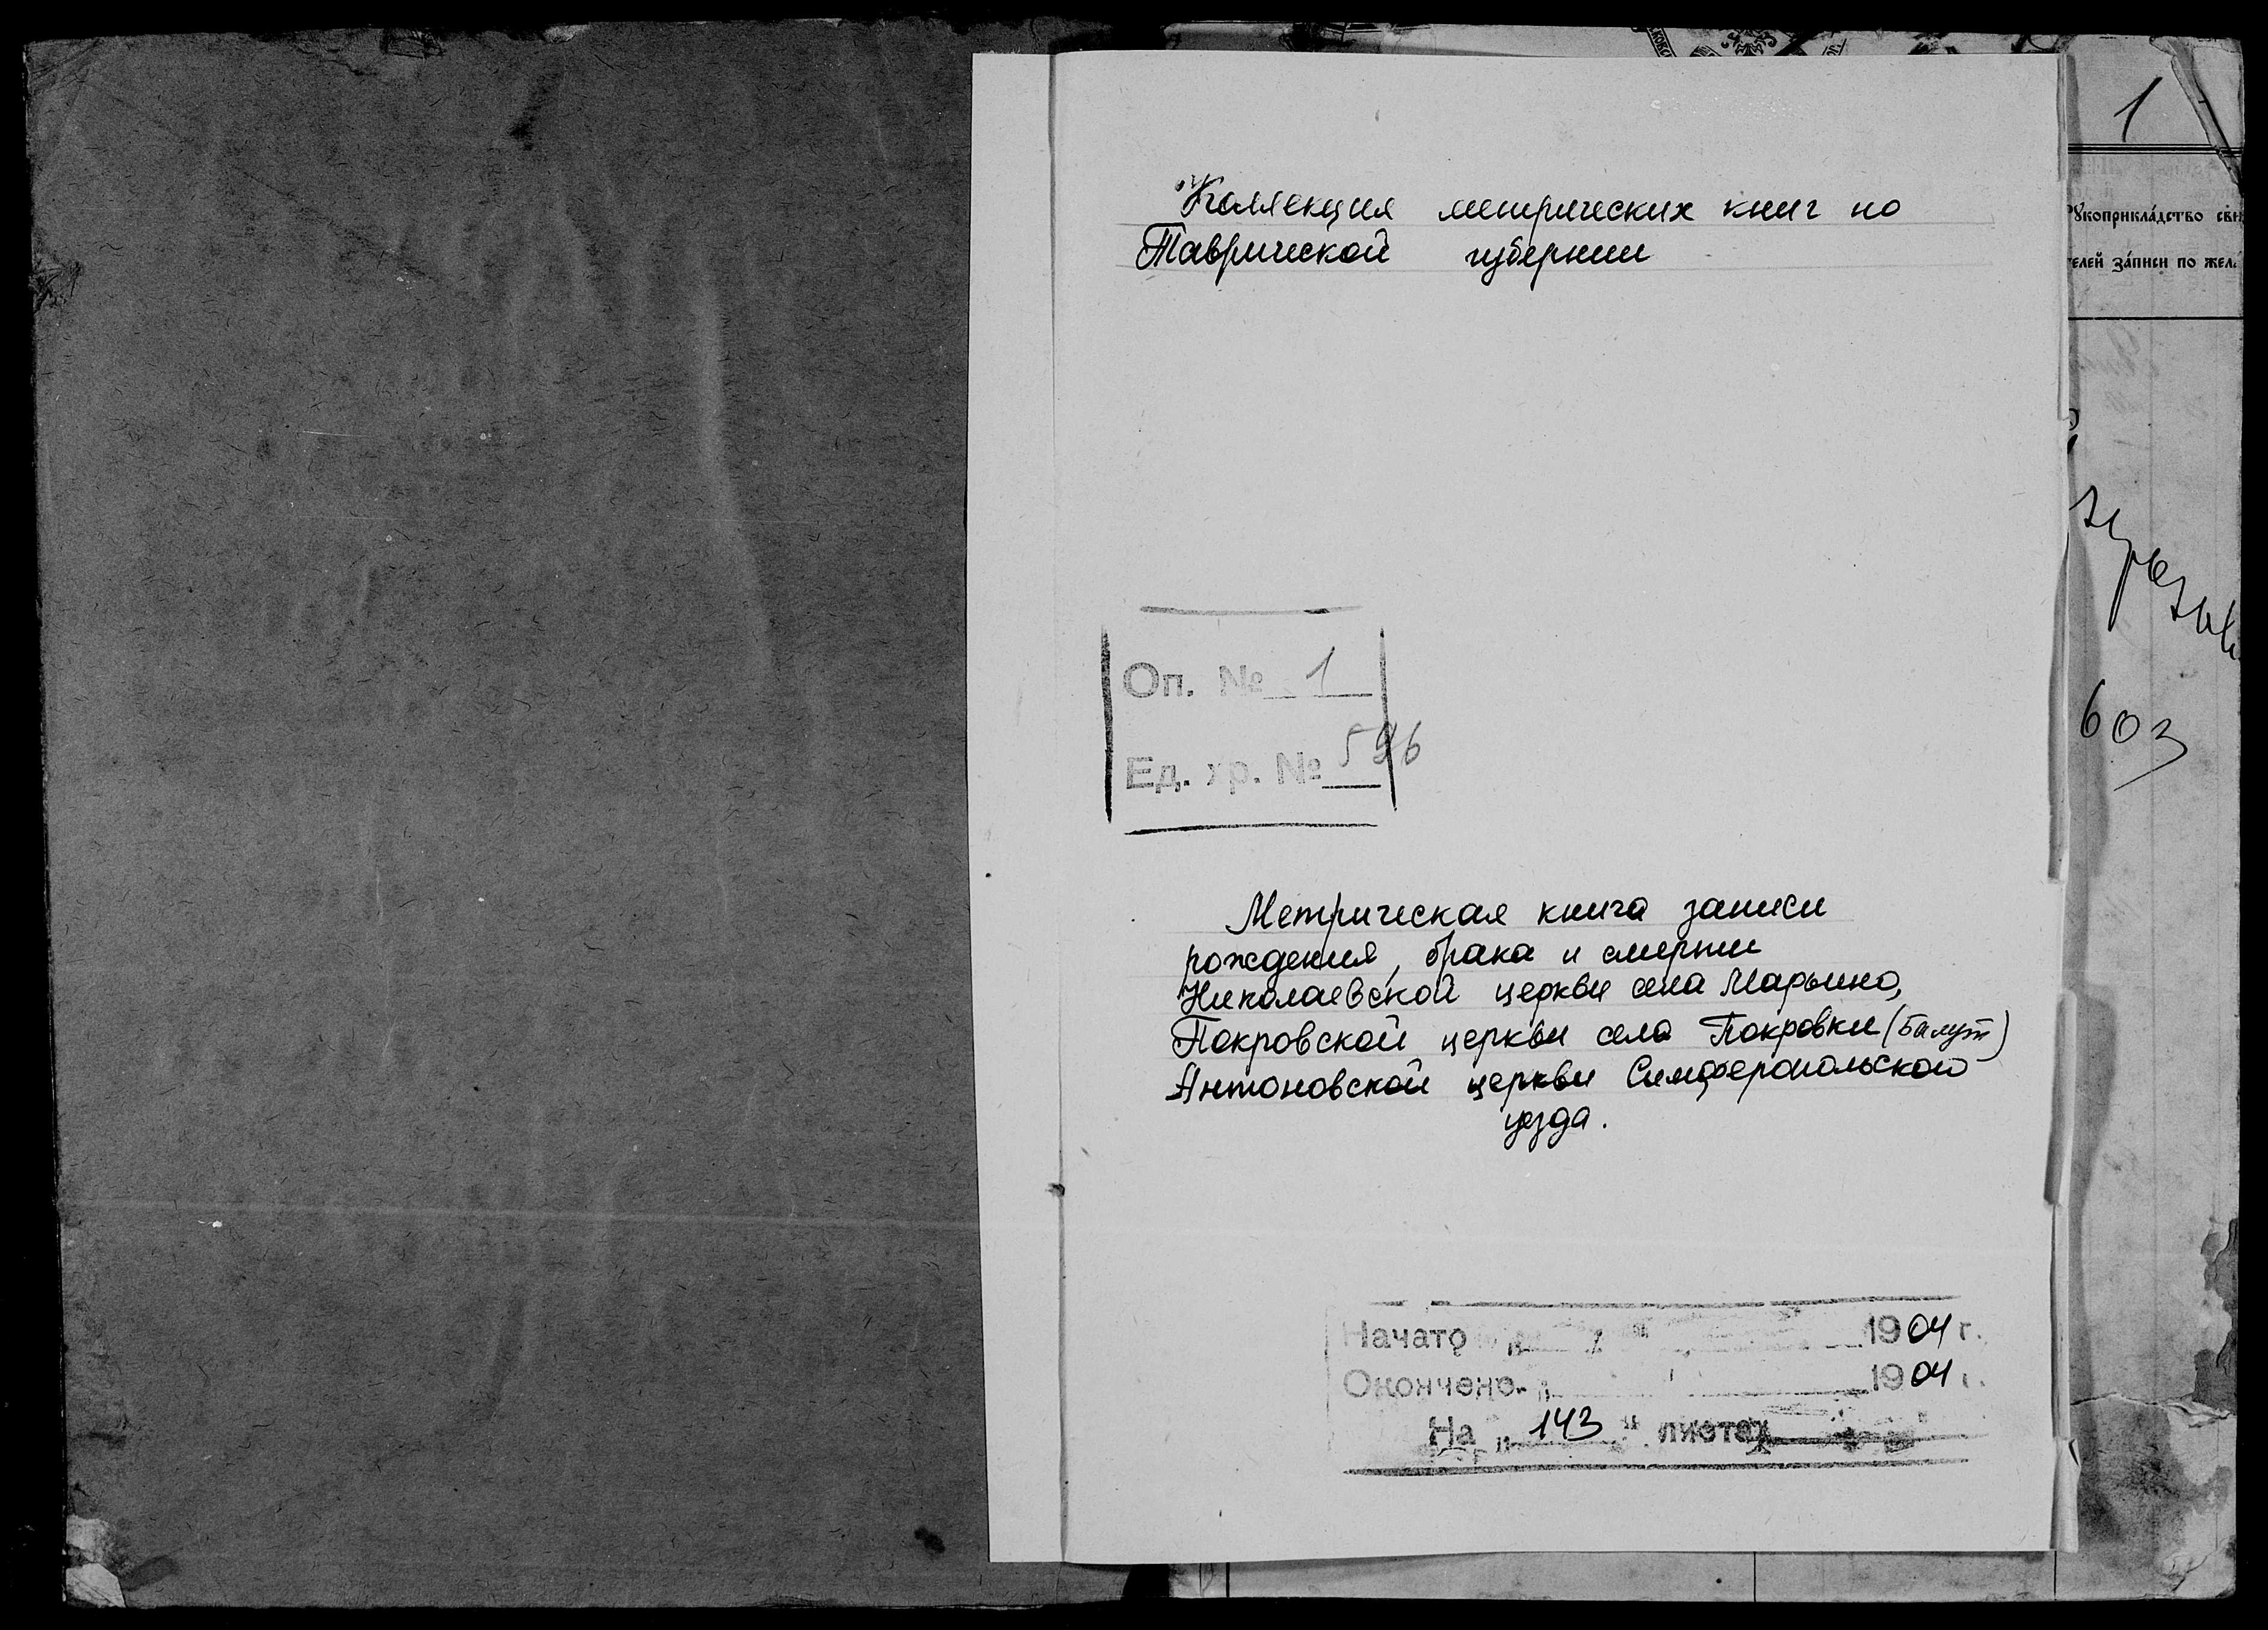 Коллекция метрических книг по
Таврической губернии
Оп. № 1
Ед. хр. № 596
Метрическая книга записи
рождения, брака и смерти
Николаевской церкви села Марьино,
Покровской церкви села Покровки (Билут)
Антоновской церкви Симферопольского
уезда.
Начато „ " 1904 г.
Окончено „ 1904 г.
На „ 143 " листах
1
Рукоприкла́дство сви
телей за́писи по жела
603